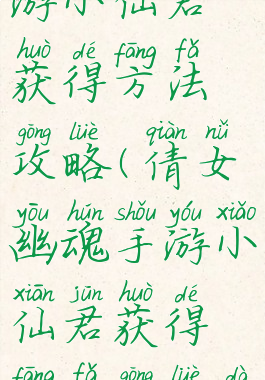 游小仙君
huò dé fāng fǎ
获得方法
gōng lüè qiàn nǚ
攻略(倩女
yōu hún shǒu yóu xiǎo
幽魂手游小
xiān jūn huò dé
仙君获得
fāng fǎ gōng lüè dà